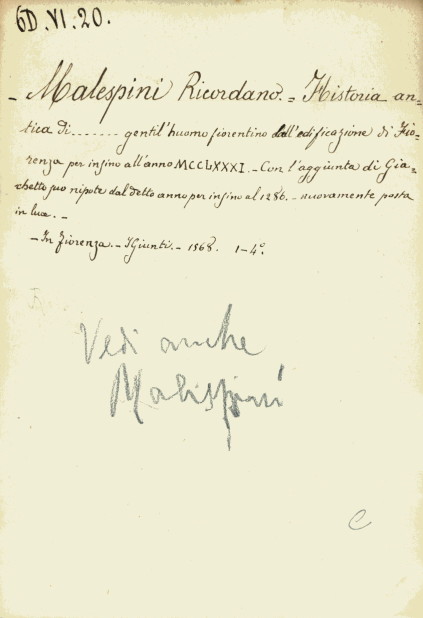 6D.VI.20.
- Malespini Ricordano. = Historia an-
tica di ....... gentil'huomo fiorentino dall'edificazione di Fio-
renza per insino all'anno MCCLXXXI. - Con l'aggiunta di Gia-
chetto suo nipote dal detto anno per insino al 1286. - nuovamente posta
in luce. -
- In Fiorenza. - I Giunti. - 1568. 1-4°.
Vedi anche
Malispini
C